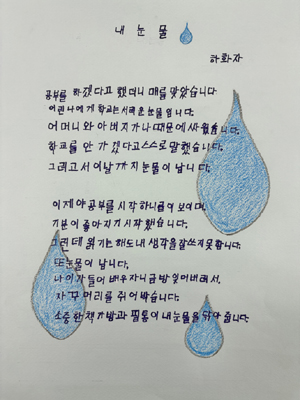 내 눈물
하화자
공부를 하겠다고 했더니 매를 맞았습니다
어린나에게 학교는서러운눈물입니다.
어머니와 아버지가나때문에싸웠습니다.
학교를 안 가겠다고스스로말했습니다.
그리고서이날까지눈물이 납니다.
이제야공부를시작하니글이보이며.
기분이좋아지기시작했습니다.
그런데 읽기는해도내생각을잘쓰지못합니다.
또눈물이 납니다.
나이가들어배우자니금방잊어버려서.
자꾸머리를쥐어박습니다.
소중한책가방과필통이내눈물을닦아줍니다.